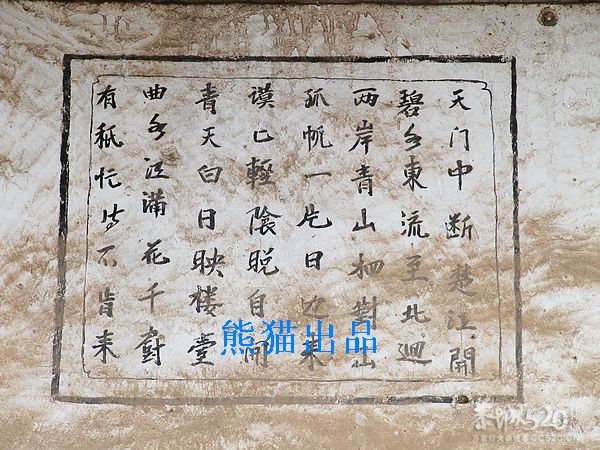 天门中断楚江開
碧水東流至北迴
两岸青山相對出
孤帆一片日边来
漠々輕陰晚自開
青天白日映楼堂
曲水江满花千樹
有秪忙时不肯来
熊猫出品
恭城520